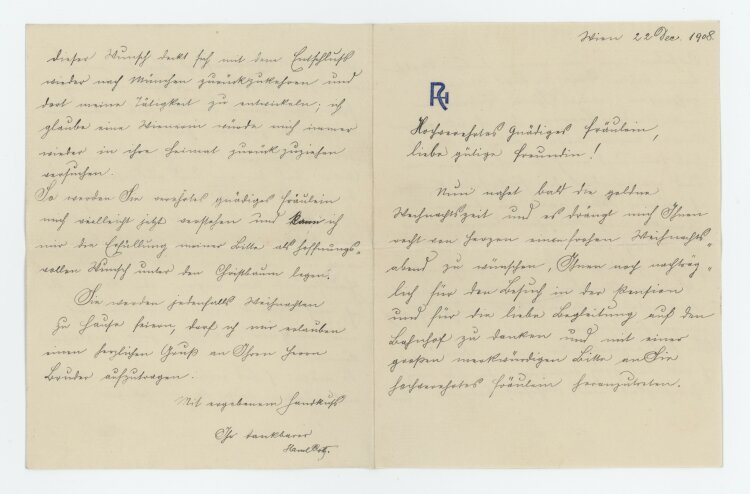 Wien 22 Dec. 1908.
Hochverehrtes Gnädiges Fräulein,
liebe gütige Freundin!
Nun naht bald die goldne
Weihnachtszeit und es drängt mich Ihnen
recht von Herzen einen frohen Weihnachts-
abend zu wünschen, Ihnen noch nachträg-
lich für den Besuch in der Pension
und für die liebe Begleitung auf den
Bahnhof zu danken und mit einer
großen merkwürdigen Bitte an Sie
hochverehrtes Fräulein heranzutreten.
dieser Wunsch deckt sich mit dem Entschluß
wieder nach München zurückzukehren und
dort meine Tätigkeit zu entwickeln; ich
glaube eine Wienerin würde mich immer
wieder in ihre Heimat zurück zuziehen
versuchen.
So werden Sie verehrtes gnädiges Fräulein
mich vielleicht jetzt verstehen und kann ich
nur die Erfüllung meiner Bitte als hoffnungs-
vollen Wunsch unter den Christbaum legen.
Sie werden jedenfalls Weihnachten
zu Hause feiern, darf ich mir erlauben
einen herzlichen Gruß an Ihren Herrn
Bruder aufzutragen.
Mit ergebenem Handkuß
Ihr dankbarer